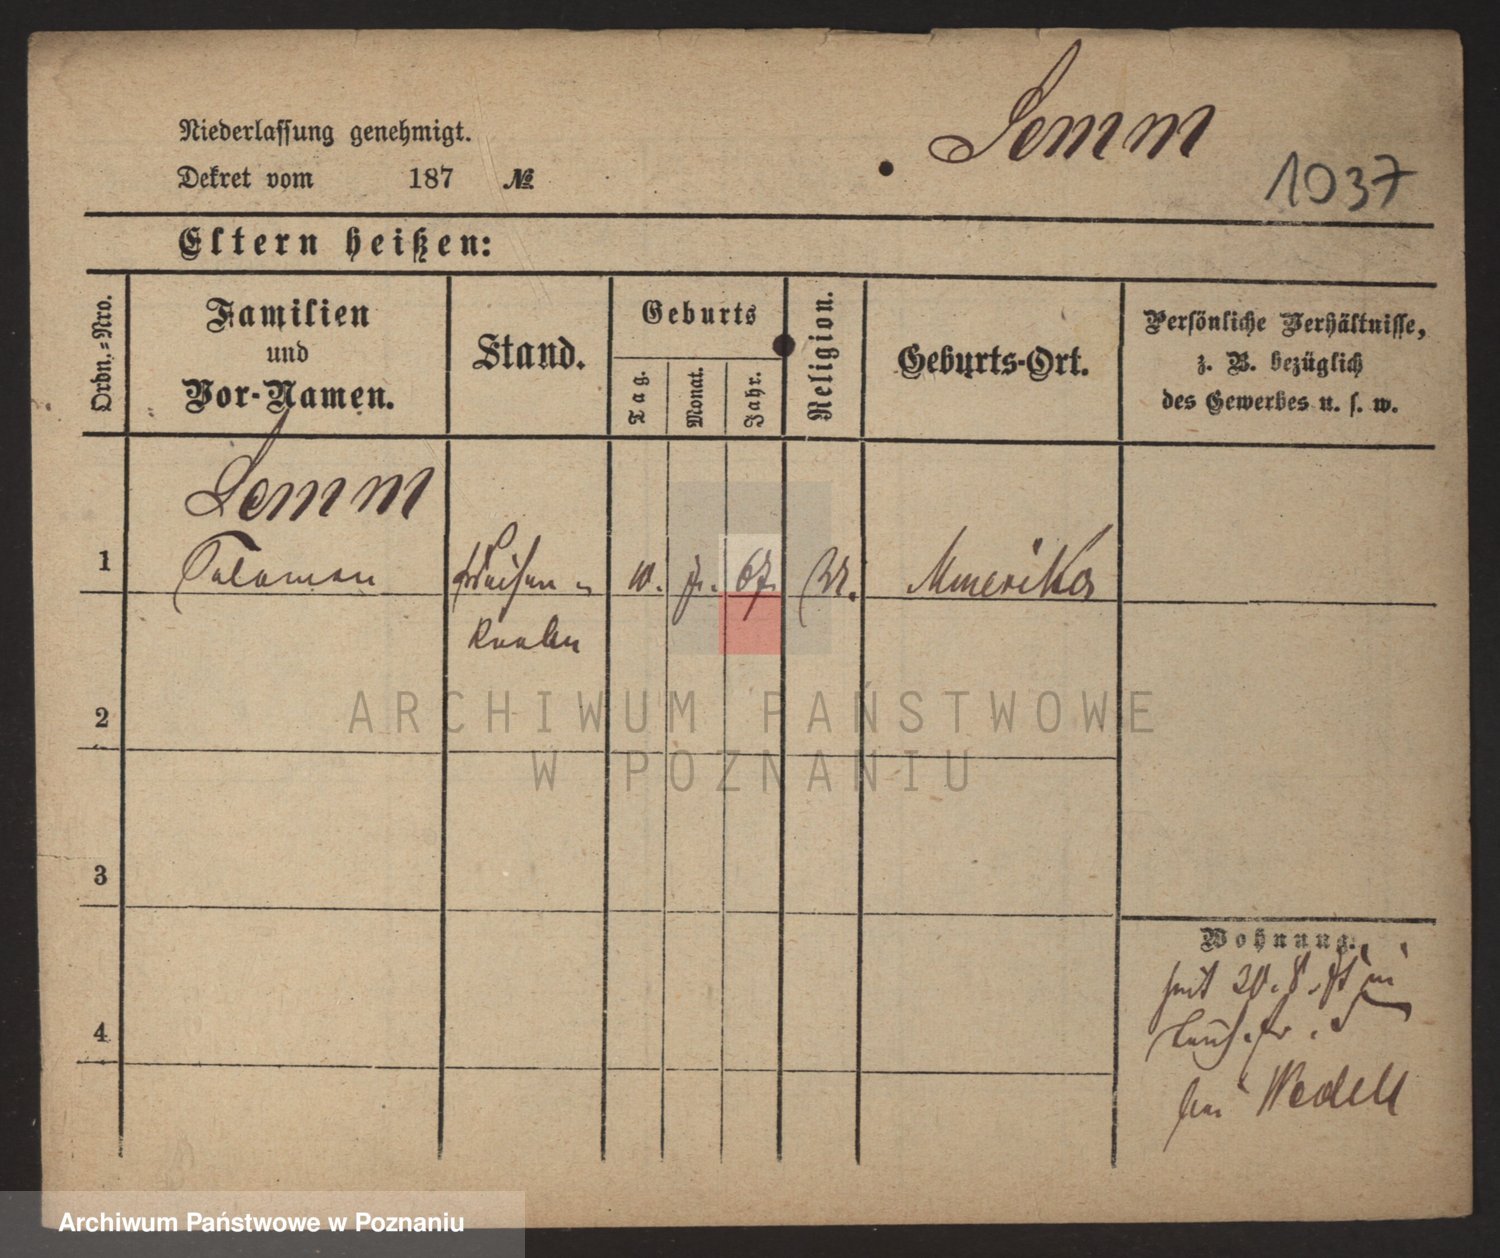 Niederlassung genehmigt.
Dekret vom 187 №
Lemm
1037
Eltern heißen:
Ordn.-Nro.
Familien
und
Vor-Namen.
Stand.
Geburts
Tag.
Monat.
Jahr.
Religion.
Geburts-Ort.
Persönliche Verhältnisse,
z. B. bezüglich
des Gewerbes u. s. w.
Lemm
1
Salomon
10.
67.
Amerika
2
3
4
Wohnung.
seit 20.
bei Wedell
ARCHIWUM PAŃSTWOWE
W POZNANIU
Archiwum Państwowe w Poznaniu